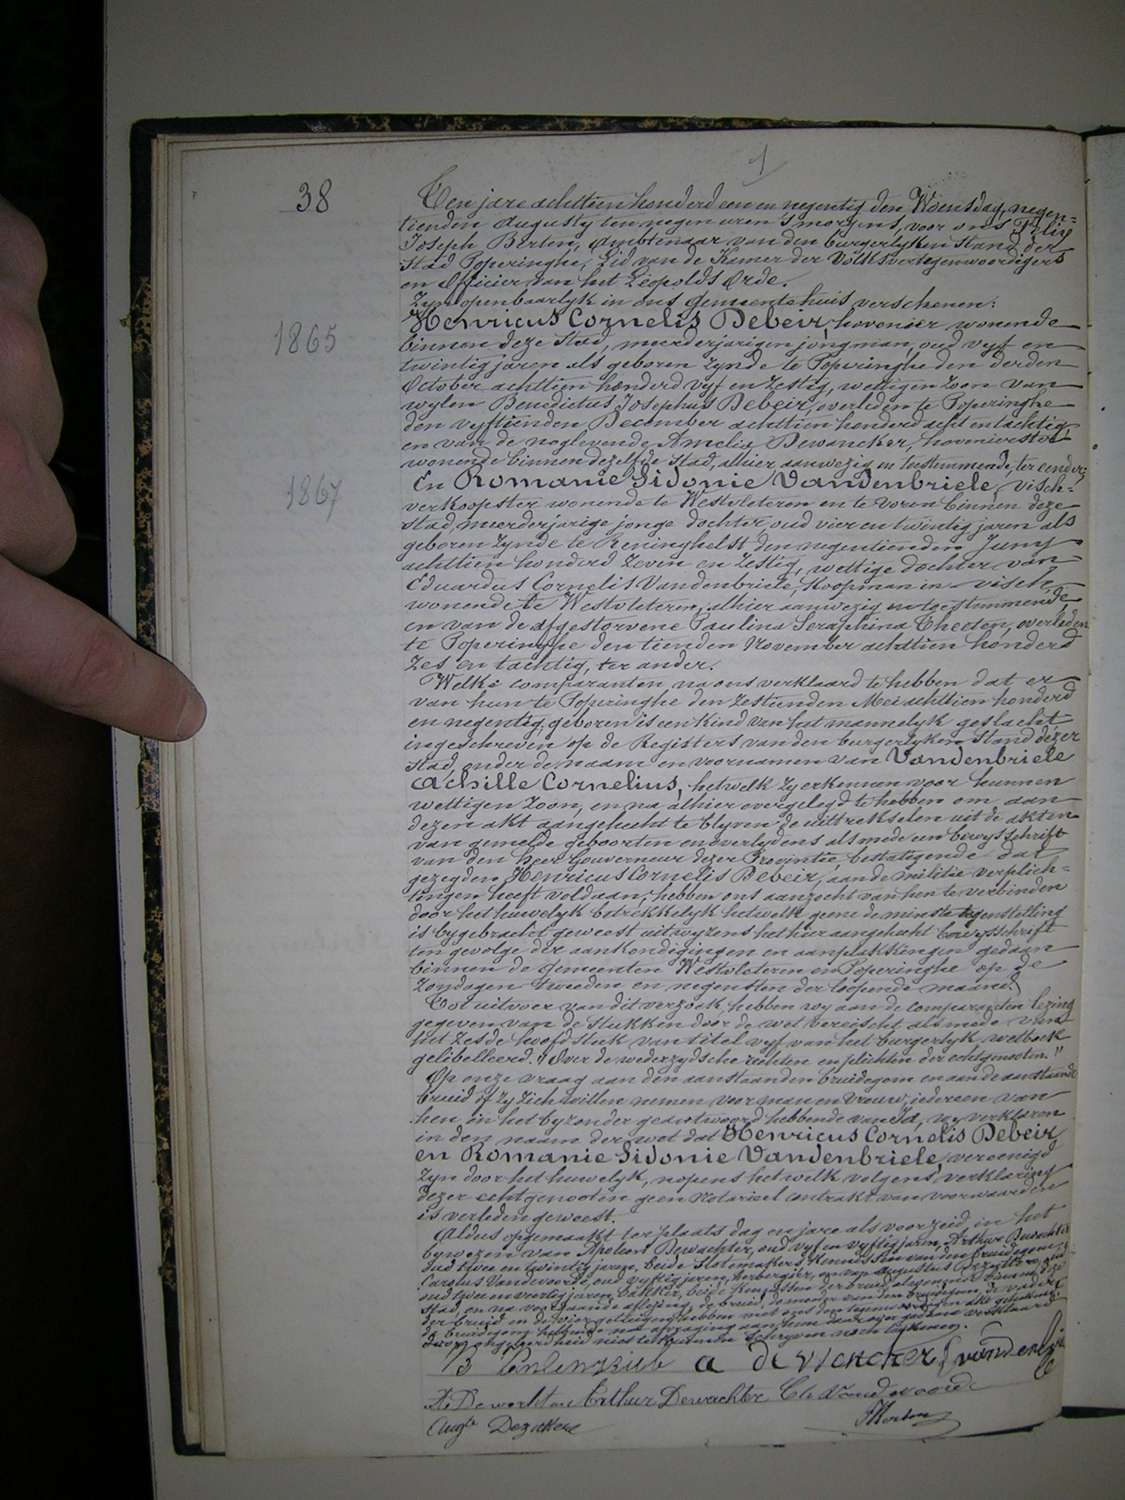 1
38
Ten jare achttien honderd een en negentig den Woensdag, negen=
tienden Augusty ten negen uren 's morgens, voor ons Felix
Joseph Berten, Ambtenaar van den burgerlyken stand der
stad Poperinghe, Lid van de Kamer der Volksvertegenwoordigers
en Officier van het Leopolds Orde.
Zyn openbaarlyk in ons gemeentehuis verschenen:
Henricus Cornelis Debeir, hovenier wonende
1865
binnen deze stad, meerderjarigen jongman, oud vyf en
twintig jaren als geboren zynde te Poperinghe den derden
October achttien honderd vyf en zestig, wettigen zoon van
wylen Benedictus Josephus Debeir, overleden te Poperinghe
den vyftienden December achttien honderd acht en tachtig,
en van de noglevende Amelia Dewancker, hovenierster
wonende binnen dezelfde stad, alhier aanwezig en toestemmende, ter eender;
En Romanie Sidonie Vandenbriele, visch=
1867
verkoopster wonende te Westvleteren en te voren binnen deze
stad, meerderjarige jonge dochter, oud vier en twintig jaren als
geboren zynde te Reninghelst den negentienden Juny
achttien honderd zeven en zestig, wettige dochter van
Eduardus Cornelis Vandenbriele, koopman in visch,
wonende te Westvleteren, alhier aanwezig en toestemmende,
en van de afgestorvene Paulina Seraphina Theeten, overleden
te Poperinghe den tienden November achttien honderd
zes en tachtig, ter ander.
Welke comparanten na ons verklaard te hebben dat er
van hun te Poperinghe den zestienden Mei achttien honderd
en negentig, geboren is een kind van het mannelyk geslacht
ingeschreven op de Registers van den burgerlyken stand dezer
stad, onder de naam en voornamen van Vandenbriele
Achille Cornelius, hetwelk zy erkennen voor hunnen
wettigen zoon, en na alhier overgelegd te hebben om aan
dezen akt aangehecht te blyven de uittrekselen uit de akten
van gemelde geboorten en overlydens alsmede een bewysschrift
van den heer Gouverneur dezer Provintie, bestatigende dat
gezegden Henricus Cornelis Debeir, aan de militie verplich=
tingen heeft voldaan, hebben ons aanzocht van hen te verbinden
door het huwelyk betrekkelyk hetwelk geene de minste tegenstelling
is bygebracht geweest uitwyzens het hier aangehecht bewysschrift
ten gevolge der aankondigingen en aanplakkingen gedaan
binnen de gemeenten Westvleteren en Poperinghe op de
Zondagen tweeden en negensten der loopende maand.
Tot uitvoer van dit verzoek, hebben wy aan de comparanten lezing
gegeven van de stukken door de wet vereischt alsmede van
het zesde hoofdstuk van titel vyf van het burgerlyk wetboek
gelibelleerd: "Over de wederzydsche rechten en plichten der echtgenooten."
Op onze vraag aan den aanstaanden bruidegom en aan de aanstaande
bruid of zy zich willen nemen voor man en vrouw, iedereen van
hen in het byzonder geantwoord hebbende van Ja, wy verklaren
in den naam der wet dat Henricus Cornelis Debeir
en Romanie Sidonie Vandenbriele, vereenigd
zyn door het huwelyk, nopens hetwelk volgens verklaring
dezer echtgenooten geen Notarieel contrakt van voorwaarden
is verleden geweest.
Aldus opgemaakt ter plaats dag en jare als voorzeid in het
bywezend van Apolont Dewachter, oud vyf en vyftig jaren, Arthur Dewachter
oud twee en twintig jaren, beide Slotemakers, kennissen van den bruidegom,
Carolus Vandevoorde, oud vyftig jaren, herbergier, en van Augustus Dezutter
oud twee en veertig jaren, bakker, beide kennissen der bruid, al wonende binnen deze
stad, en na voorgaande aflezing, de bruid, de moeder van den bruidegom, de vader
der bruid en de vier getuigen hebben met ons den tegenwoordigen akt geteekend,
de bruidegom
R Vandenbriele a devancker vandenbri
Ap Dewachter Arthur Dewachter Ch Vandevoorde
Augte Dezutter FBerten